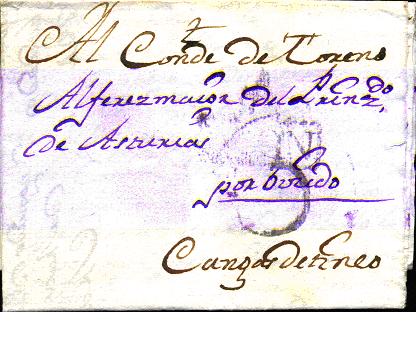 Al Conde de Toreno
Alferez maior del Prinzdo,
de Asturias
N
por Oviedo
5
Cangas de tineo